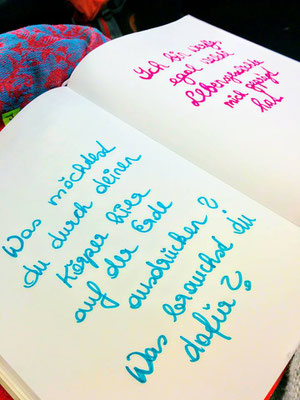 Was möchtest
du durch deinen
Körper hier
auf der Erde
ausdrücken?
Was brauchst du
dafür?
Ich bin
egal
Lebensgeschichte
mich geprägt
hat